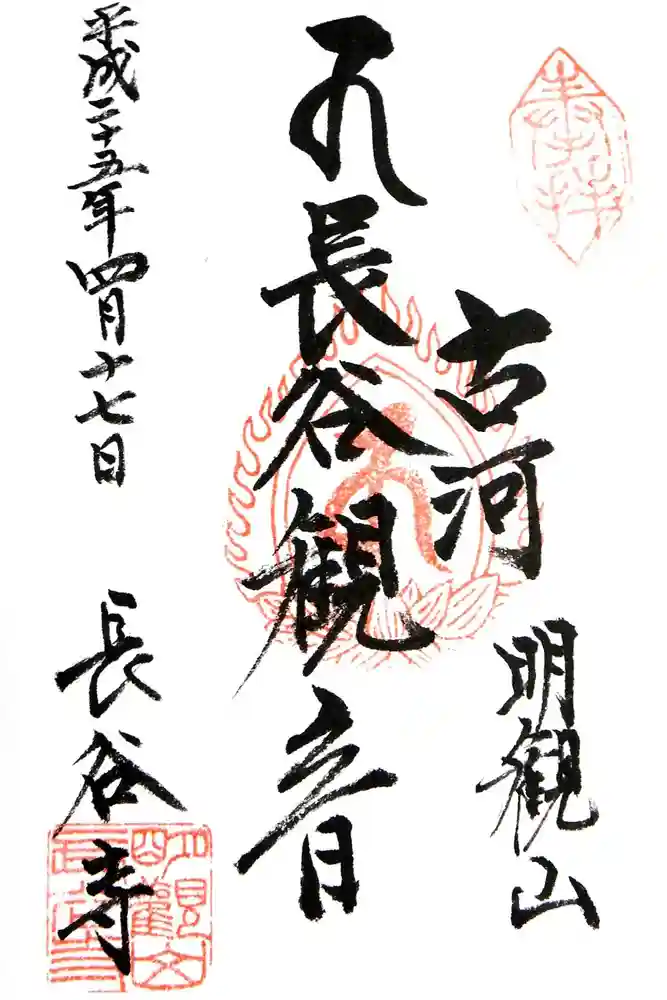 奉拝
古河
明観山
長谷観音
平成二十五年四月十七日
長谷寺